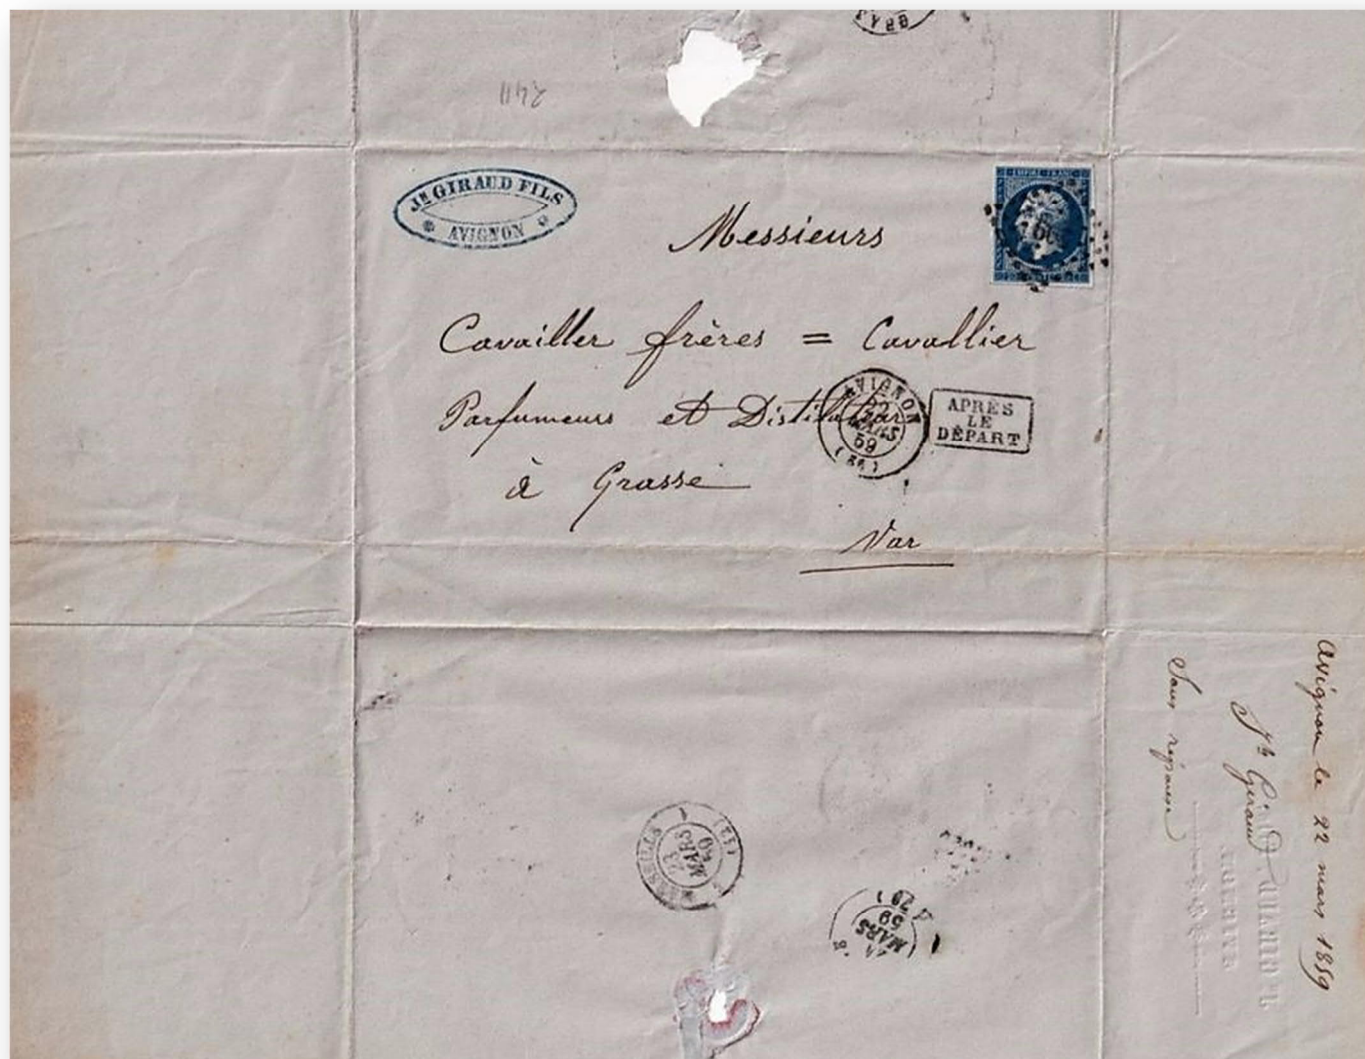 244
Jh GIRAUD FILS
AVIGNON
EMPIRE FRANC
Messieurs
Cavailler frères = Cavallier
Parfumeurs et Distilateurs
à Grasse
Var
AVIGNON
22
MARS
59
(86)
APRÈS
LE
DÉPART
MARSEILLE
23
MARS
59
(12)
MARS
59
Avignon le 22 mars 1859
Jh Giraud
Sans réponse